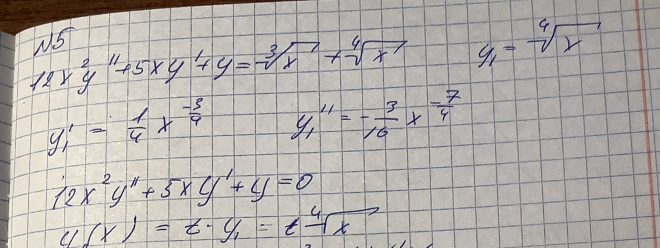 N5
12x²y'' + 5xy' + y = ∛x + ∜x    y₁ = ∜x
y₁' = 1/4 x^(-3/4)    y₁'' = -3/16 x^(-7/4)
12x²y'' + 5xy' + y = 0
y(x) = z · y₁ = z ∜x